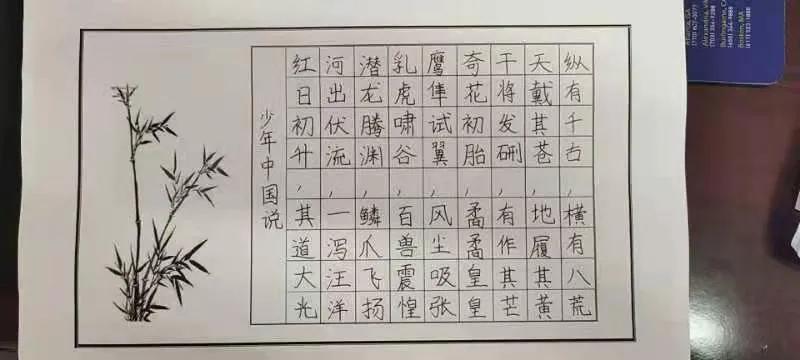 少年中国说
红日初升，其道大光
河出伏流，一泻汪洋
潜龙腾渊，鳞爪飞扬
乳虎啸谷，百兽震惶
鹰隼试翼，风尘吸张
奇花初胎，矞矞皇皇
干将发硎，有作其芒
天戴其苍，地履其黄
纵有千古，横有八荒
Burlingame,
Boston, MA